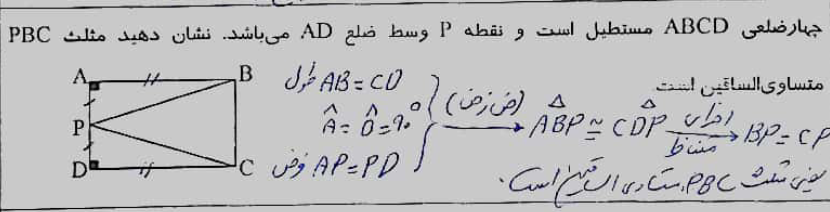 چهارضلعی ABCD مستطیل است و نقطه P وسط ضلع AD می‌باشد. نشان دهید مثلث PBC
متساوی‌الساقین است.
A B
P
D C
طول AB = CD
Â = D̂ = 90°
فرض AP = PD
(ض ز ض) ABP ≅ CDP اجزای متناظر BP = CP
یعنی مثلث PBC متساوی الساقین است.